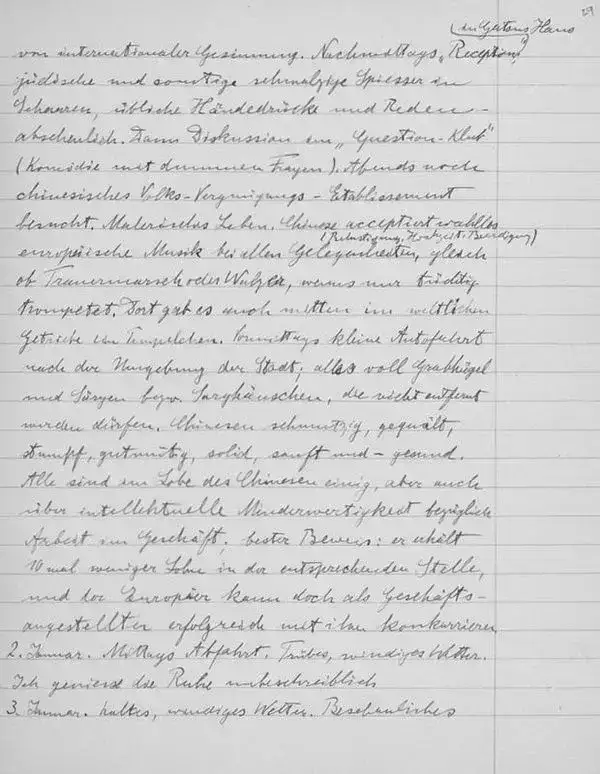 29
(in Gattons Haus
von internationaler Gesinnung. Nachmittags „Reception",
jüdische und sonstige schmalzige Spiesser in
Scharen, übliche Händedrücke und Reden –
abscheulich. Dann Diskussion im „Question-Klub"
(Komödie mit dummen Fragen). Abends noch
chinesisches Volks-Vergnügungs-Etablissement
besucht. Malerisches Leben. Chinese acceptiert wahllos
(Belustigung, Hochzeit, Beerdigung)
europäische Musik bei allen Gelegenheiten, gleich
ob Trauermarsch oder Walzer, wenns nur tüchtig
trompetet. Dort gab es auch mitten im weltlichen
Getriebe ein Tempelchen. Vormittags kleine Autofahrt
nach der Umgebung der Stadt; alles voll Grabhügel
und Särgen bezw. Sarghäuschen, die nicht entfernt
werden dürfen. Chinesen schmutzig, gequält,
stumpf, gutmütig, solid, sanft und – gesund.
Alle sind im Lobe des Chinesen einig, aber auch
über intellektuelle Minderwertigkeit bezüglich
Arbeit im Geschäft; bester Beweis: er erhält
10 mal weniger Lohn in der entsprechenden Stelle,
und der Europäer kann doch als Geschäfts-
angestellter erfolgreich mit ihm konkurrieren
2. Januar. Mittags Abfahrt. Trübes, windiges Wetter.
Ich geniesse die Ruhe unbeschreiblich
3. Januar. kaltes, windiges Wetter. Beschauliches